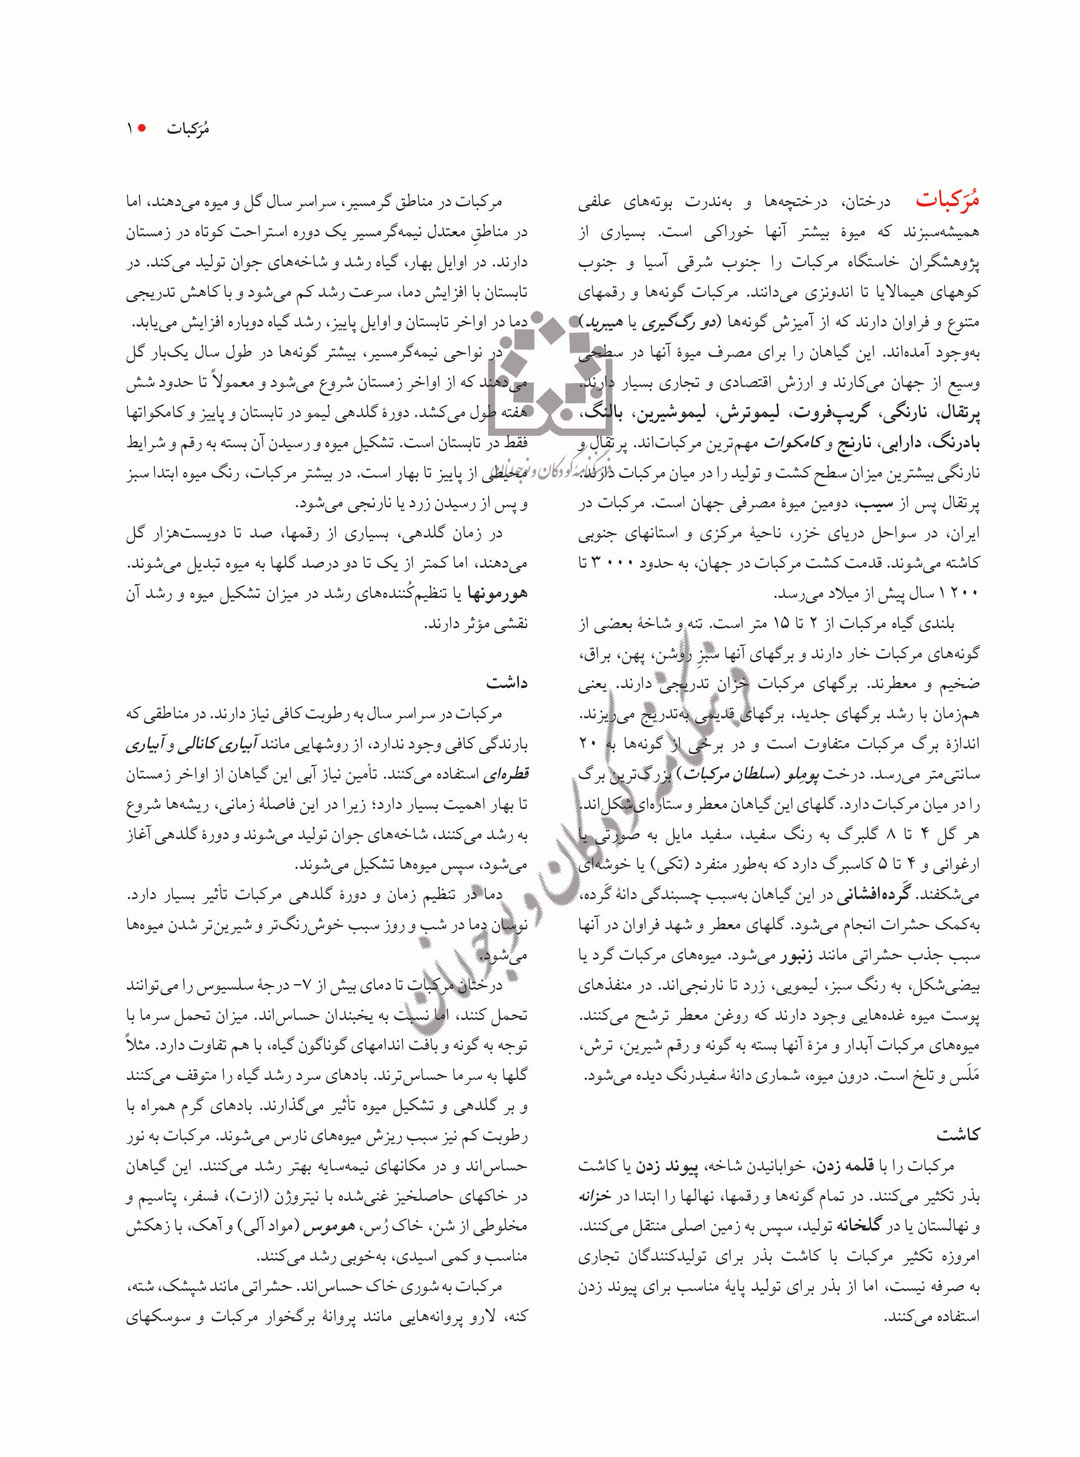 مُرَکبات ● ۱
مُرَکبات درختان، درختچه‌ها و به‌ندرت بوته‌های علفی
همیشه‌سبزند که میوهٔ بیشتر آنها خوراکی است. بسیاری از
پژوهشگران خاستگاه مرکبات را جنوب شرقی آسیا و جنوب
کوههای هیمالایا تا اندونزی می‌دانند. مرکبات گونه‌ها و رقمهای
متنوع و فراوان دارند که از آمیزش گونه‌ها (دو رگ‌گیری یا هیبرید)
به‌وجود آمده‌اند. این گیاهان را برای مصرف میوهٔ آنها در سطحی
وسیع از جهان می‌کارند و ارزش اقتصادی و تجاری بسیار دارند.
پرتقال، نارنگی، گریپ‌فروت، لیموترش، لیموشیرین، بالنگ،
بادرنگ، دارابی، نارنج و کامکوات مهم‌ترین مرکبات‌اند. پرتقال و
نارنگی بیشترین میزان سطح کشت و تولید را در میان مرکبات دارند.
پرتقال پس از سیب، دومین میوهٔ مصرفی جهان است. مرکبات در
ایران، در سواحل دریای خزر، ناحیهٔ مرکزی و استانهای جنوبی
کاشته می‌شوند. قدمت کشت مرکبات در جهان، به حدود ۰۰۰ ۳ تا
۲۰۰ ۱ سال پیش از میلاد می‌رسد.
بلندی گیاه مرکبات از ۲ تا ۱۵ متر است. تنه و شاخهٔ بعضی از
گونه‌های مرکبات خار دارند و برگهای آنها سبزِ روشن، پهن، براق،
ضخیم و معطرند. برگهای مرکبات خزان تدریجی دارند. یعنی
هم‌زمان با رشد برگهای جدید، برگهای قدیمی به‌تدریج می‌ریزند.
اندازهٔ برگ مرکبات متفاوت است و در برخی از گونه‌ها به ۲۰
سانتی‌متر می‌رسد. درخت پومِلو (سلطان مرکبات) بزرگ‌ترین برگ
را در میان مرکبات دارد. گلهای این گیاهان معطر و ستاره‌ای‌شکل‌اند.
هر گل ۴ تا ۸ گلبرگ به رنگ سفید، سفید مایل به صورتی یا
ارغوانی و ۴ تا ۵ کاسبرگ دارد که به‌طور منفرد (تکی) یا خوشه‌ای
می‌شکفند. گَرده‌افشانی در این گیاهان به‌سبب چسبندگی دانهٔ گَرده،
به‌کمک حشرات انجام می‌شود. گلهای معطر و شهد فراوان در آنها
سبب جذب حشراتی مانند زنبور می‌شود. میوه‌های مرکبات گرد یا
بیضی‌شکل، به رنگ سبز، لیمویی، زرد تا نارنجی‌اند. در منفذهای
پوست میوه غده‌هایی وجود دارند که روغن معطر ترشح می‌کنند.
میوه‌های مرکبات آبدار و مزهٔ آنها بسته به گونه و رقم شیرین، ترش،
مَلَس و تلخ است. درون میوه، شماری دانهٔ سفیدرنگ دیده می‌شود.
کاشت
مرکبات را با قلمه زدن، خوابانیدن شاخه، پیوند زدن یا کاشت
بذر تکثیر می‌کنند. در تمام گونه‌ها و رقمها، نهالها را ابتدا در خزانه
و نهالستان یا در گلخانه تولید، سپس به زمین اصلی منتقل می‌کنند.
امروزه تکثیر مرکبات با کاشت بذر برای تولیدکنندگان تجاری
به صرفه نیست، اما از بذر برای تولید پایهٔ مناسب برای پیوند زدن
استفاده می‌کنند.
مرکبات در مناطق گرمسیر، سراسر سال گل و میوه می‌دهند، اما
در مناطقِ معتدل نیمه‌گرمسیر یک دوره استراحت کوتاه در زمستان
دارند. در اوایل بهار، گیاه رشد و شاخه‌های جوان تولید می‌کند. در
تابستان با افزایش دما، سرعت رشد کم می‌شود و با کاهش تدریجی
دما در اواخر تابستان و اوایل پاییز، رشد گیاه دوباره افزایش می‌یابد.
در نواحی نیمه‌گرمسیر، بیشتر گونه‌ها در طول سال یک‌بار گل
می‌دهند که از اواخر زمستان شروع می‌شود و معمولاً تا حدود شش
هفته طول می‌کشد. دورهٔ گلدهی لیمو در تابستان و پاییز و کامکواتها
فقط در تابستان است. تشکیل میوه و رسیدن آن بسته به رقم و شرایط
محیطی از پاییز تا بهار است. در بیشتر مرکبات، رنگ میوه ابتدا سبز
و پس از رسیدن زرد یا نارنجی می‌شود.
در زمان گلدهی، بسیاری از رقمها، صد تا دویست‌هزار گل
می‌دهند، اما کمتر از یک تا دو درصد گلها به میوه تبدیل می‌شوند.
هورمونها یا تنظیم‌کُننده‌های رشد در میزان تشکیل میوه و رشد آن
نقشی مؤثر دارند.
داشت
مرکبات در سراسر سال به رطوبت کافی نیاز دارند. در مناطقی که
بارندگی کافی وجود ندارد، از روشهایی مانند آبیاری کانالی و آبیاری
قطره‌ای استفاده می‌کنند. تأمین نیاز آبی این گیاهان از اواخر زمستان
تا بهار اهمیت بسیار دارد؛ زیرا در این فاصلهٔ زمانی، ریشه‌ها شروع
به رشد می‌کنند، شاخه‌های جوان تولید می‌شوند و دورهٔ گلدهی آغاز
می‌شود، سپس میوه‌ها تشکیل می‌شوند.
دما در تنظیم زمان و دورهٔ گلدهی مرکبات تأثیر بسیار دارد.
نوسان دما در شب و روز سبب خوش‌رنگ‌تر و شیرین‌تر شدن میوه‌ها
می‌شود.
درختان مرکبات تا دمای بیش از ۷- درجهٔ سلسیوس را می‌توانند
تحمل کنند، اما نسبت به یخبندان حساس‌اند. میزان تحمل سرما با
توجه به گونه و بافت اندامهای گوناگون گیاه، با هم تفاوت دارد. مثلاً
گلها به سرما حساس‌ترند. بادهای سرد رشد گیاه را متوقف می‌کنند
و بر گلدهی و تشکیل میوه تأثیر می‌گذارند. بادهای گرم همراه با
رطوبت کم نیز سبب ریزش میوه‌های نارس می‌شوند. مرکبات به نور
حساس‌اند و در مکانهای نیمه‌سایه بهتر رشد می‌کنند. این گیاهان
در خاکهای حاصلخیز غنی‌شده با نیتروژن (ازت)، فسفر، پتاسیم و
مخلوطی از شن، خاک رُس، هوموس (مواد آلی) و آهک، با زهکش
مناسب و کمی اسیدی، به‌خوبی رشد می‌کنند.
مرکبات به شوری خاک حساس‌اند. حشراتی مانند شپشک، شته،
کنه، لارو پروانه‌هایی مانند پروانهٔ برگخوار مرکبات و سوسکهای
فرهنگنامه کودکان و نوجوانان
فرهنگنامه کودکان و نوجوانان